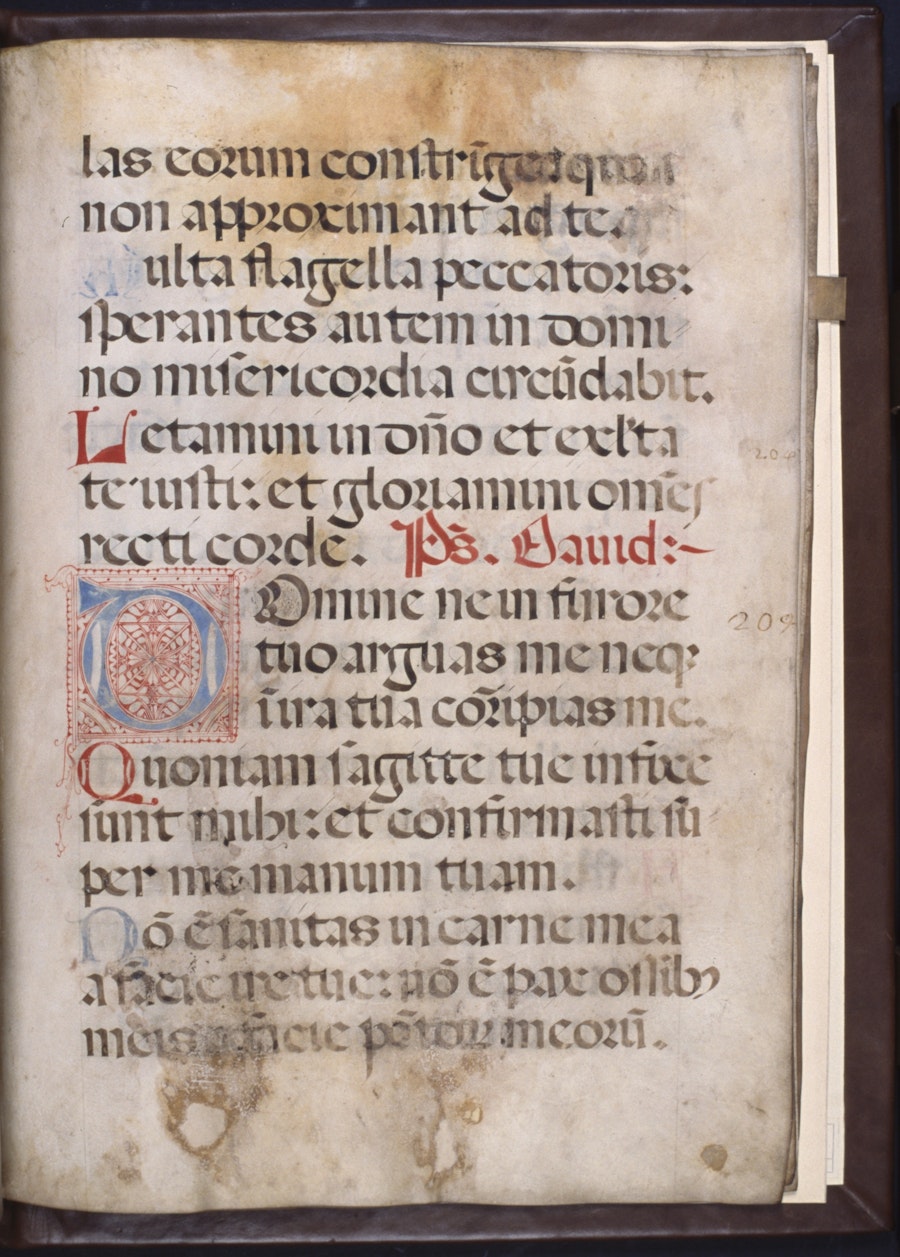 las eorum constrīge qui
non approximant ad te.
Multa flagella peccatoris:
sperantes autem in domi
no misericordia circūdabit.
Letamini in dn̄o et exl'ta
te iusti: et gloriamini om̄es
recti corde. Ps̄. Dauid:~
Domine ne in furore
209
tuo arguas me neq:
ī ira tua cor̄ipias me.
Quoniam sagitte tue infixe
sunt mihi: et confirmasti su
per me manum tuam.
Nō ē sanitas in carne mea
a facie ire tue: nō ē pax ossibꝰ
meis a facie pc̄tor meorū.